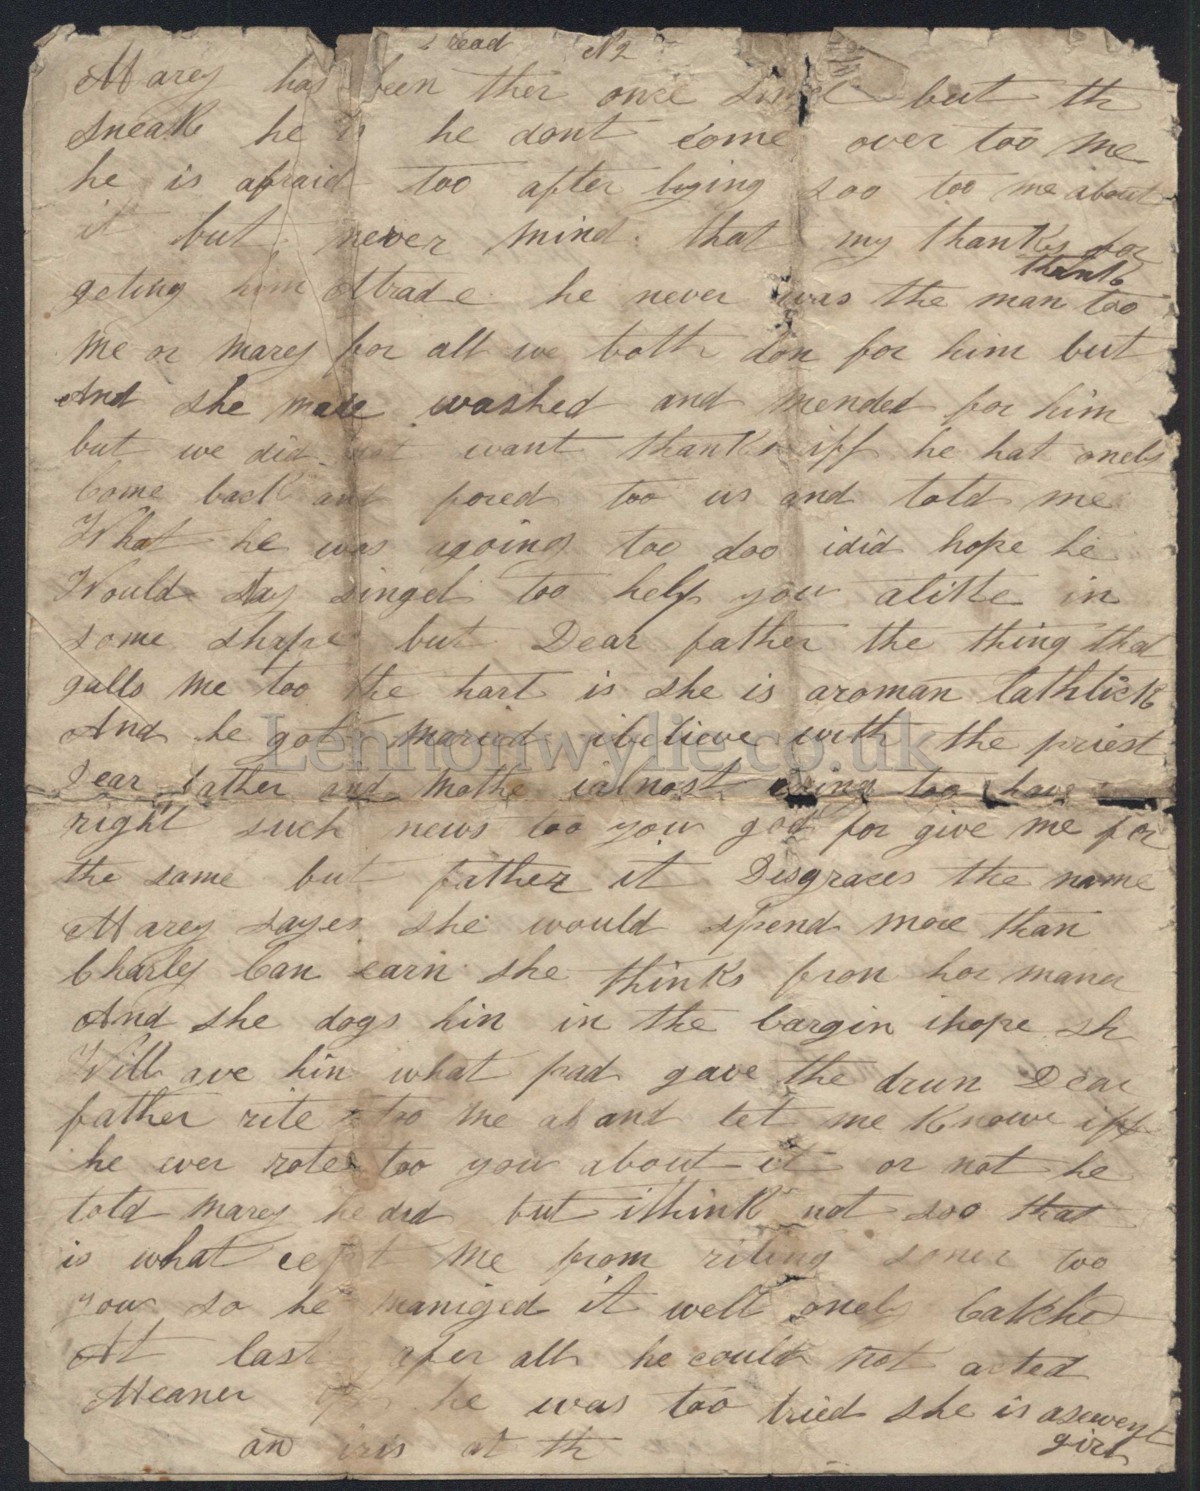 read No 2
Marey has been ther once since but th
sneak he is he dont come over too me
he is afraid too after lyeing soo too me about
it but never mind that my thanks for
thank
geting him Atrade he never was the man too
me or marey for all we both don for him but
And she made washed and mended for him
but we did not want thanks iff he hat onely
Come back and fored too us and told me
What he was agoing too doo idid hope he
Would stay singel too help you alitte in
some shape but Dear father the thing that
galls me too the hart is she is aroman Cathlick
And he got maried ibelieve with the priest
Dear father and Mothe ialmost too have
right such news too you god for give me for
the same but father it Disgraces the name
Marey sayes she would spend more than
Charley Can earn she thinks fron hor maner
And she dogs hin in the bargin ihope sh
Will ave hin what pad gave the drun Dear
father rite too me and let me Knowe iff
he ever rote too you about it or not he
told marey he did but ithink not soo that
is what cept me from riting soner too
you so he maniged it well onely Catche
At last afer all he could not acted
Meaner iff he was too tried she is aswept
girl
an iris at th
Lennonwylie.co.uk